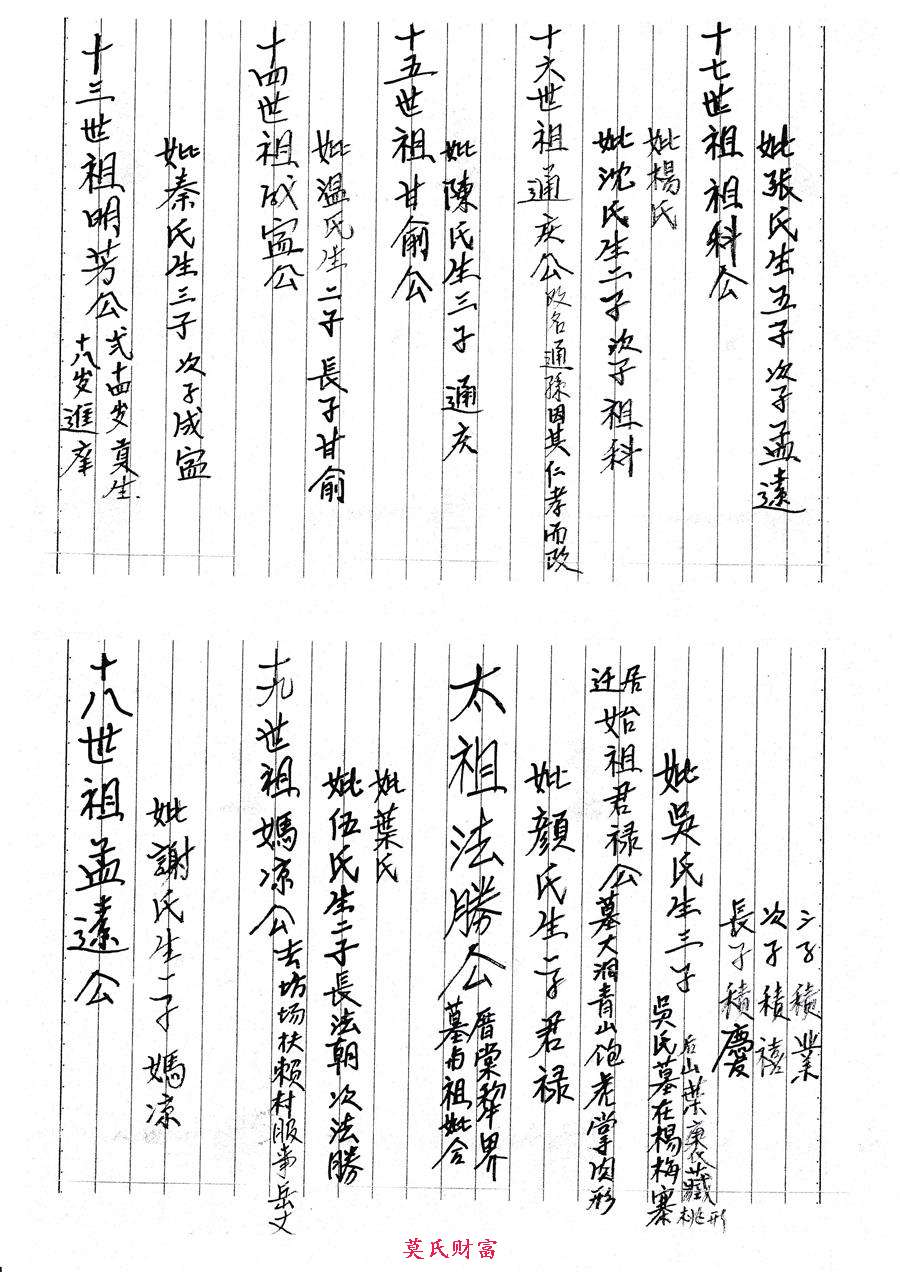 十三世祖明芳公
十八岁進庠
弍十四岁貢生
妣秦氏生三子次子成寍
十四世祖成寍公
妣温氏生二子長子甘俞
十五世祖甘俞公
妣陳氏生三子通庆
十六世祖通庆公改名通孫因其仁孝而改
妣沈氏生二子次子祖科
妣楊氏
十七世祖祖科公
妣張氏生五子次子孟遠
十八世祖孟遠公
妣謝氏生一子媽凉
十九世祖媽凉公去坊场扶賴村服事岳丈
妣伍氏生二子長法朝次法勝
妣葉氏
太祖法勝公
墓与祖妣合
厝棠犂界
妣顔氏生一子君禄
迁居始祖君禄公墓大洞青山饱老掌肉形
妣吳氏生三子吳氏墓在楊梅寨
后山葉裏藏桃形
長子積慶
次子積禧
三子積業
莫氏财富